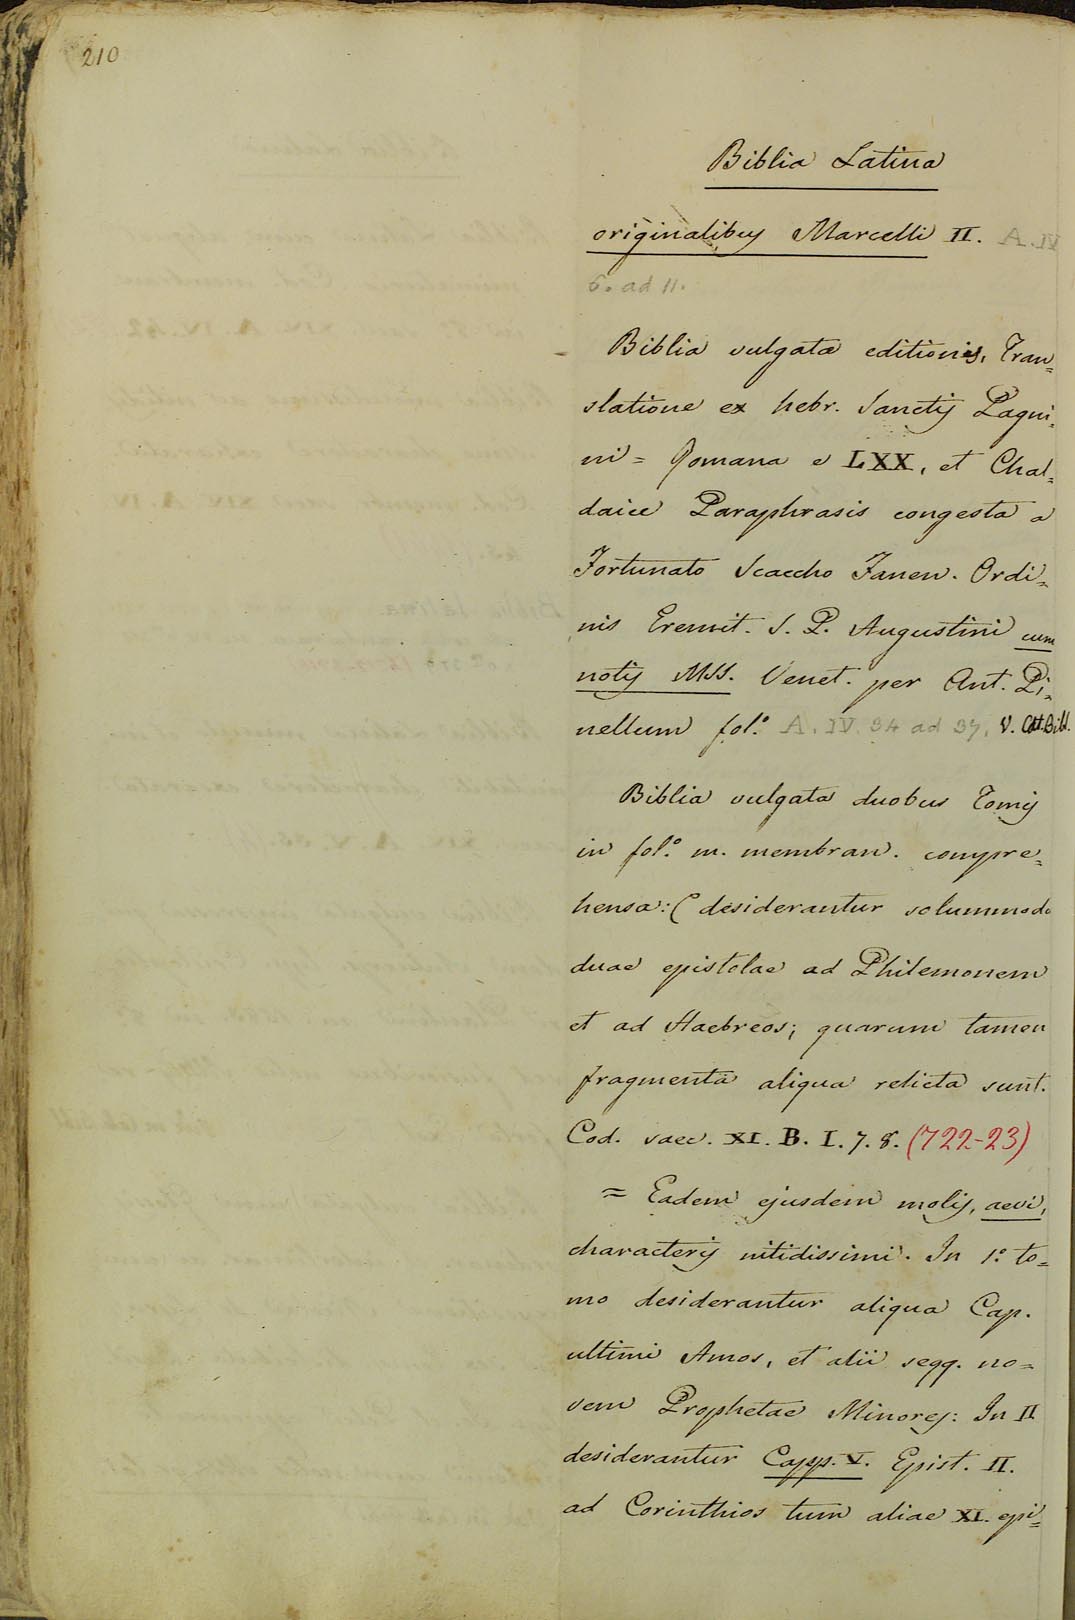 210
Biblia Latina
originalibus Marcelli II. A. IV
6. ad 11.
Biblia vulgata editionis, Tran=
slatione ex hebr. Sanctis Pagni=
ni = Romana e LXX, et Chal=
daice Paraphrasis congesta a
Fortunato Scaccho Fanen. Ordi=
nis Eremit. S. P. Augustini cum
notis MSS. Venet. per Ant. Pi=
nellum fol.º A. IV. 34 ad 37, V. Cat. Bibl.
Biblia vulgata duobus Tomis
in fol.º m. membran. compre=
hensa: ( desiderantur solummodo
duae epistolae ad Philemonem
et ad Haebreos; quarum tamen
fragmenta aliqua relicta sunt.
Cod. saec. XI. B. I. 7. 8. (722-23)
= Eadem ejusdem molis, aevi,
characteris nitidissimi. In 1.º to=
mo desiderantur aliqua Cap.
ultimi Amos, et alii seqq. no=
vem Prophetae Minores: In II
desiderantur Capp. V. Epist. II.
ad Corinthios tum aliae XI. epi=